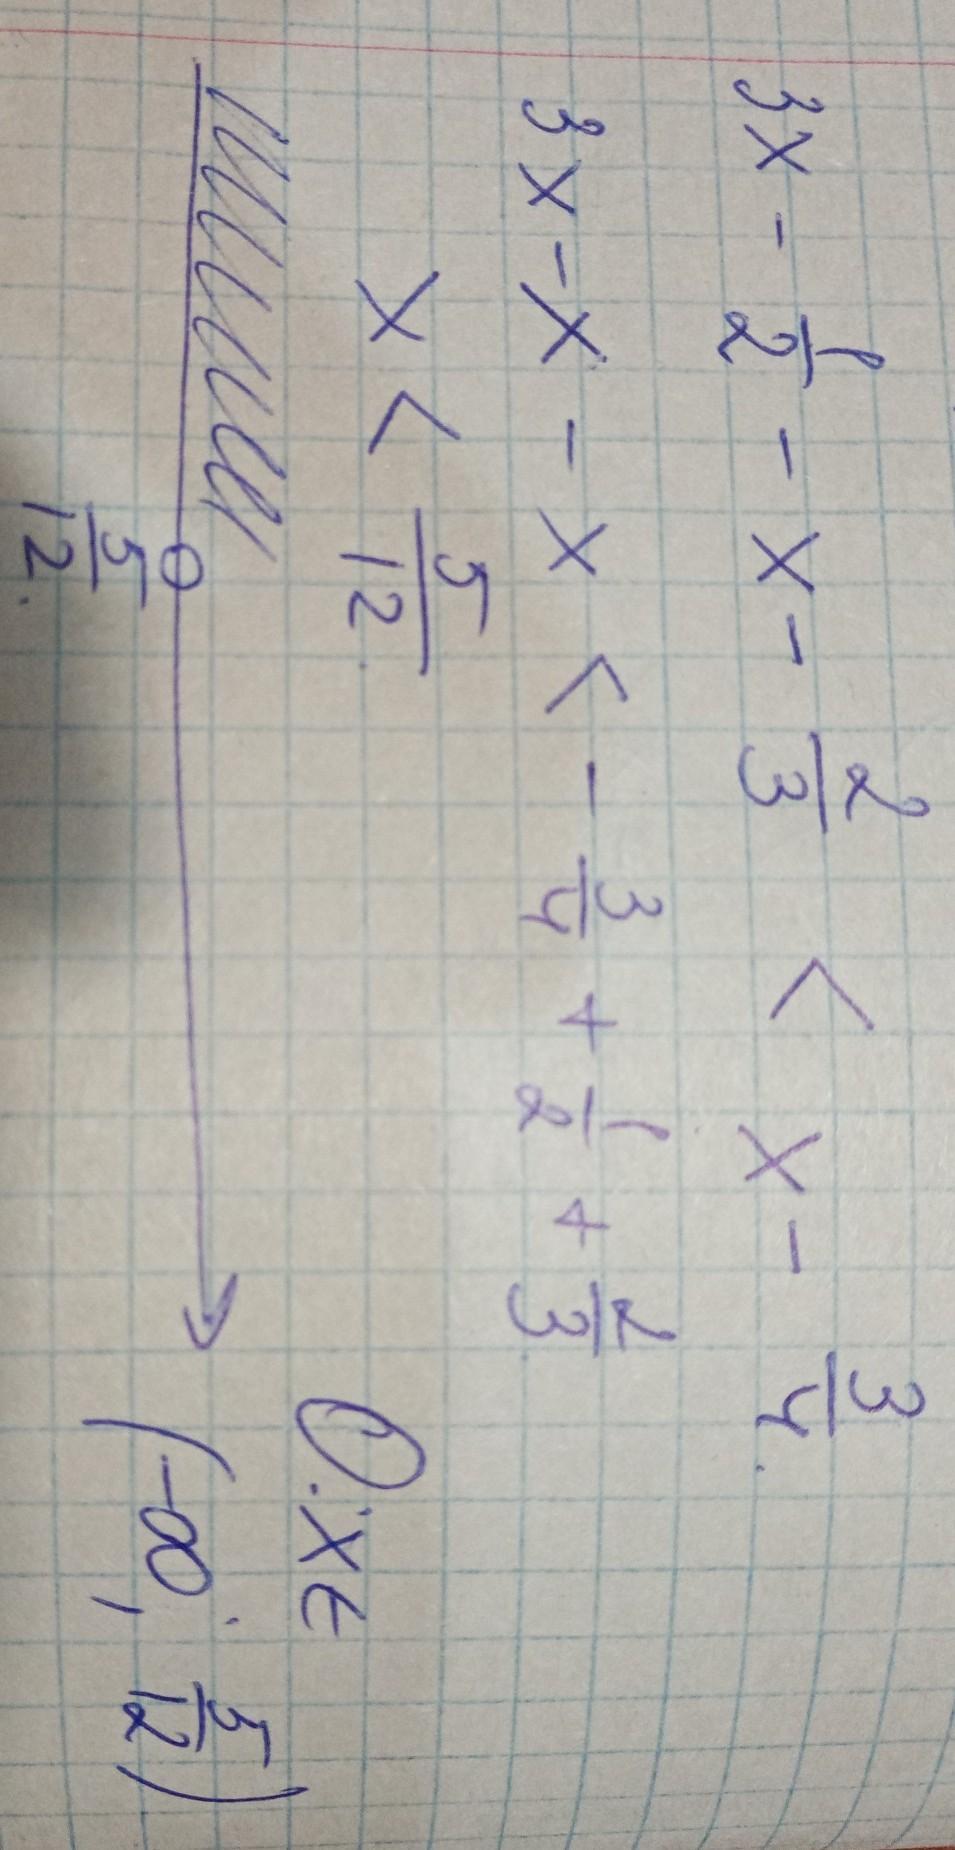 3x - 1/2 - x - 2/3 < x - 3/4.
3x - x - x < - 3/4 + 1/2 + 2/3
x < 5/12.
5/12.
O: x ∈
(-∞; 5/12)